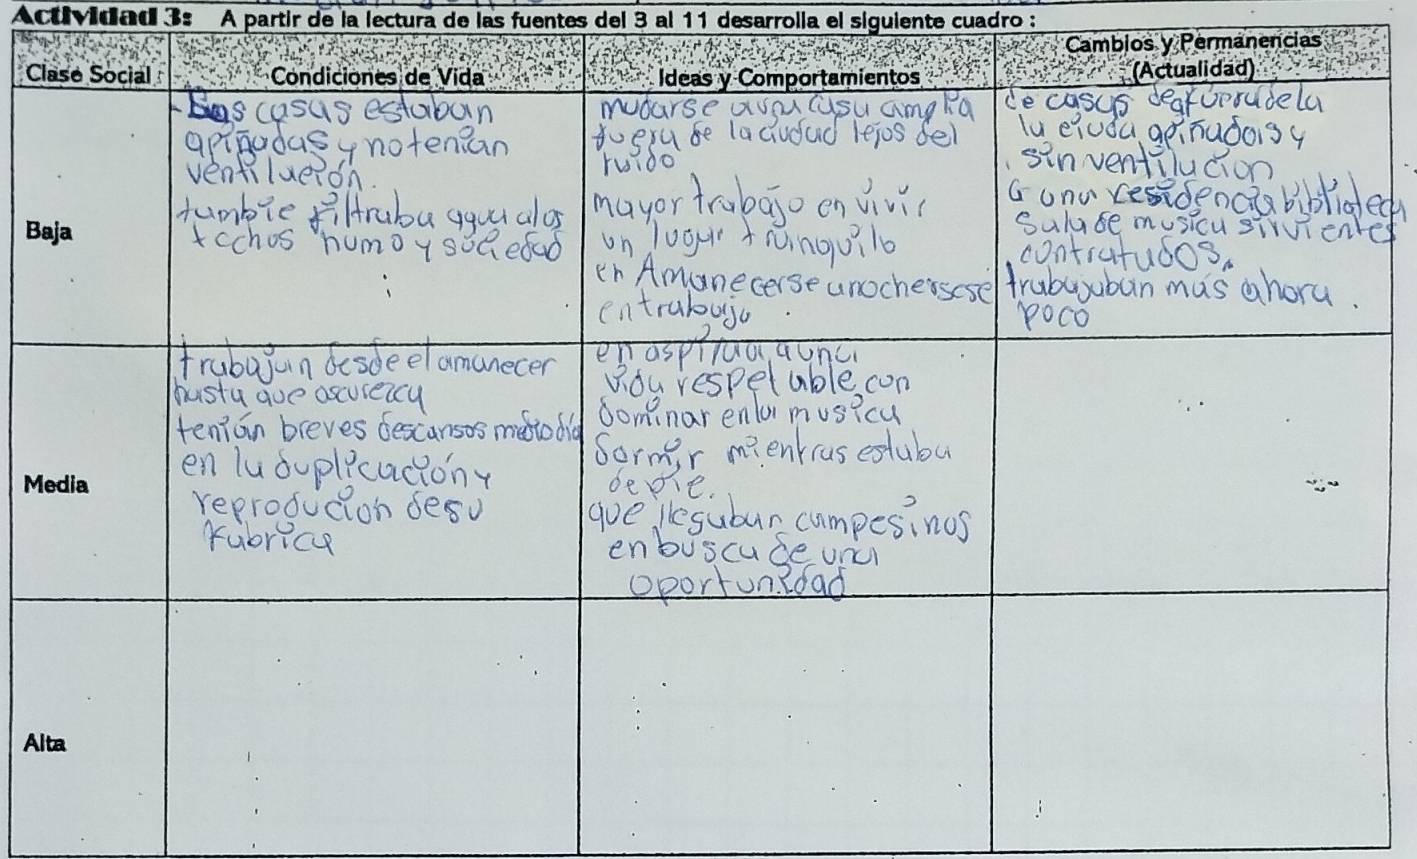 Actividad 3: A partir de la lectura de las fuentes del 3 al 11 desarrolla el siguiente cuadro :
Clase Social
Condiciones de Vida
Ideas y Comportamientos
Cambios y Permanencias
(Actualidad)
Baja
- Las casas estaban
apiñadas y no tenian
ventilación.
tambie filtraba agua alos
techos humo y suciedad
mudarse auna casa amplia
fuera de la ciudad lejos del
ruido
mayor trabajo en vivir
un lugar tranquilo
en Amanecerse anochersese
en trabajo
de casas de afuera de la
la ciuda apiñados y
sin ventilacion
a una residencia biblioteca
sala de musica sirvientes
contratados.
trabajaban más ahora
poco
Media
trabajan desde el amanecer
hasta que oscurezca
tenían breves descansos mediodia
en la duplicación y
reproducion de su
fabrica
en aspiraa auna
vida respetable con
dominar en la musica
dormir mientras estaba
de pie.
que llegaban campesinos
en busca de una
oportunidad
Alta